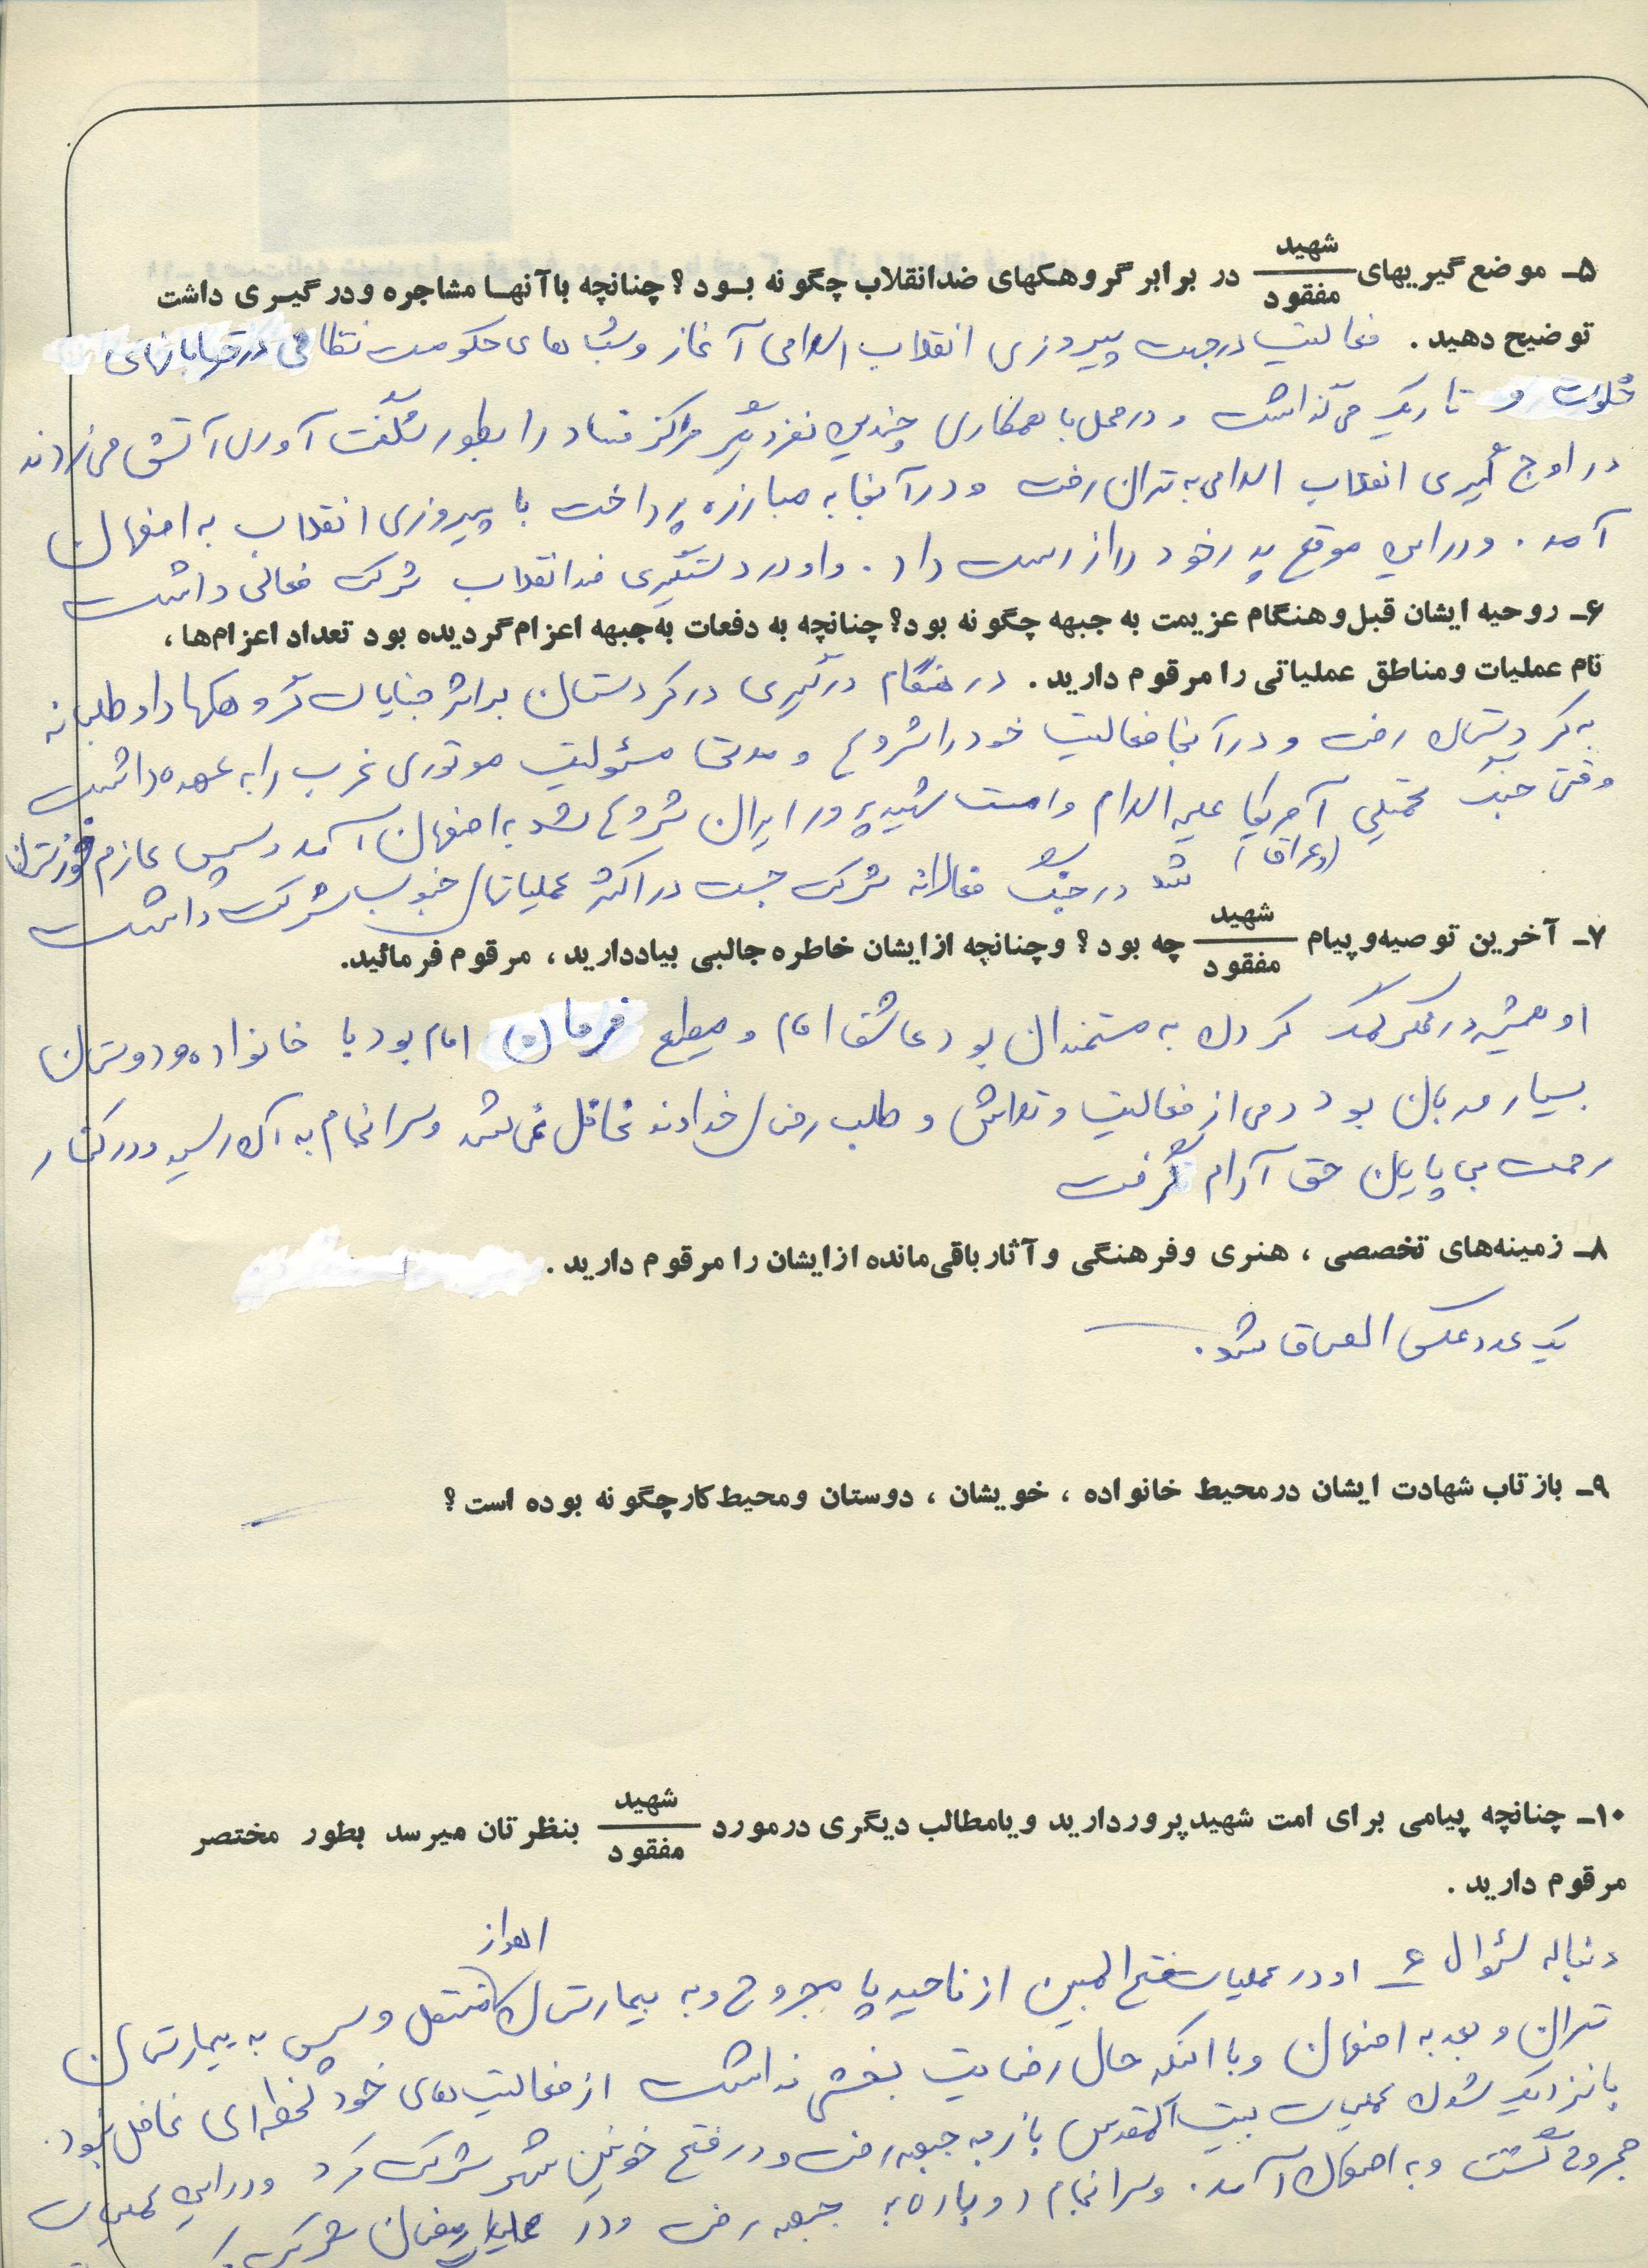 ۵ـ موضع گیریهای شهید/مفقود در برابر گروهکهای ضدانقلاب چگونه بود؟ چنانچه با آنها مشاجره و درگیری داشت
توضیح دهید. فعالیت درجهت پیروزی انقلاب اسلامی آغاز و شب های حکومت نظامی در خیابانهای
خلوت و تاریک می‌گذاشت و در محل با همکاری چندین نفر دیگر مراکز فساد را بطور شگفت آوری آتش می‌زدند
در اوج گیری انقلاب اسلامی به تهران رفت و در آنجا به مبارزه پرداخت با پیروزی انقلاب به اصفهان
آمد. و در این موقع پدر خود را از دست داد. و او در دستگیری ضدانقلاب شرکت فعالی داشت
۶ـ روحیه ایشان قبل و هنگام عزیمت به جبهه چگونه بود؟ چنانچه به دفعات به جبهه اعزام گردیده بود تعداد اعزام‌ها،
نام عملیات و مناطق عملیاتی را مرقوم دارید. در هنگام درگیری در کردستان بر اثر جنایات گروهکها داوطلبانه
به کردستان رفت و در آنجا فعالیت خود را شروع و مدتی مسئولیت موتوری غرب را به عهده داشت
وقتی جنگ تحمیلی آمریکا علیه اسلام و امت شهیدپرور ایران شروع شد به اصفهان آمد و سپس عازم خوزستان
(و عراق) شد در جنگ فعالانه شرکت جست در اکثر عملیاتهای جنوب شرکت داشت
۷ـ آخرین توصیه و پیام شهید/مفقود چه بود؟ و چنانچه از ایشان خاطره جالبی بیاد دارید، مرقوم فرمائید.
او همیشه در فکر کمک کردن به مستمندان بود عاشق امام و مطیع فرمان امام بود با خانواده و دوستان
بسیار مهربان بود دمی از فعالیت و تلاش و طلب رضای خداوند غافل نمی‌شد و سرانجام به آن رسید و در کنار
رحمت بی پایان حق آرام گرفت
۸ـ زمینه‌های تخصصی، هنری و فرهنگی و آثار باقی‌مانده از ایشان را مرقوم دارید.
یک عدد عکس الصاق شد.
۹ـ بازتاب شهادت ایشان در محیط خانواده، خویشان، دوستان و محیط کار چگونه بوده است؟
۱۰ـ چنانچه پیامی برای امت شهیدپرور دارید و یا مطالب دیگری در مورد شهید/مفقود بنظرتان میرسد بطور مختصر
مرقوم دارید.
دنباله سئوال ۶ـ او در عملیات فتح المبین از ناحیه پا مجروح و به بیمارستان اهواز منتقل و سپس به بیمارستان
تهران و بعد به اصفهان و با اینکه حال رضایت بخشی نداشت از فعالیت های خود لحظه‌ای غافل نبود.
با نزدیک شدن عملیات بیت المقدس باز به جبهه رفت و در فتح خونین شهر شرکت کرد و در این عملیات
مجروح گشت و به اصفهان آمد. و سرانجام دوباره به جبهه رفت و در عملیات رمضان شرکت